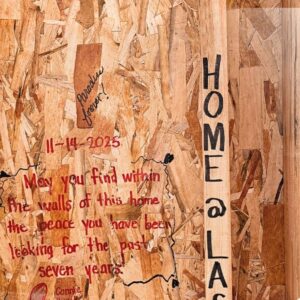 11-14-2025
May you find within
the walls of this home
the peace you have been
looking for the past
seven years!
Connie
HOME @ LAS